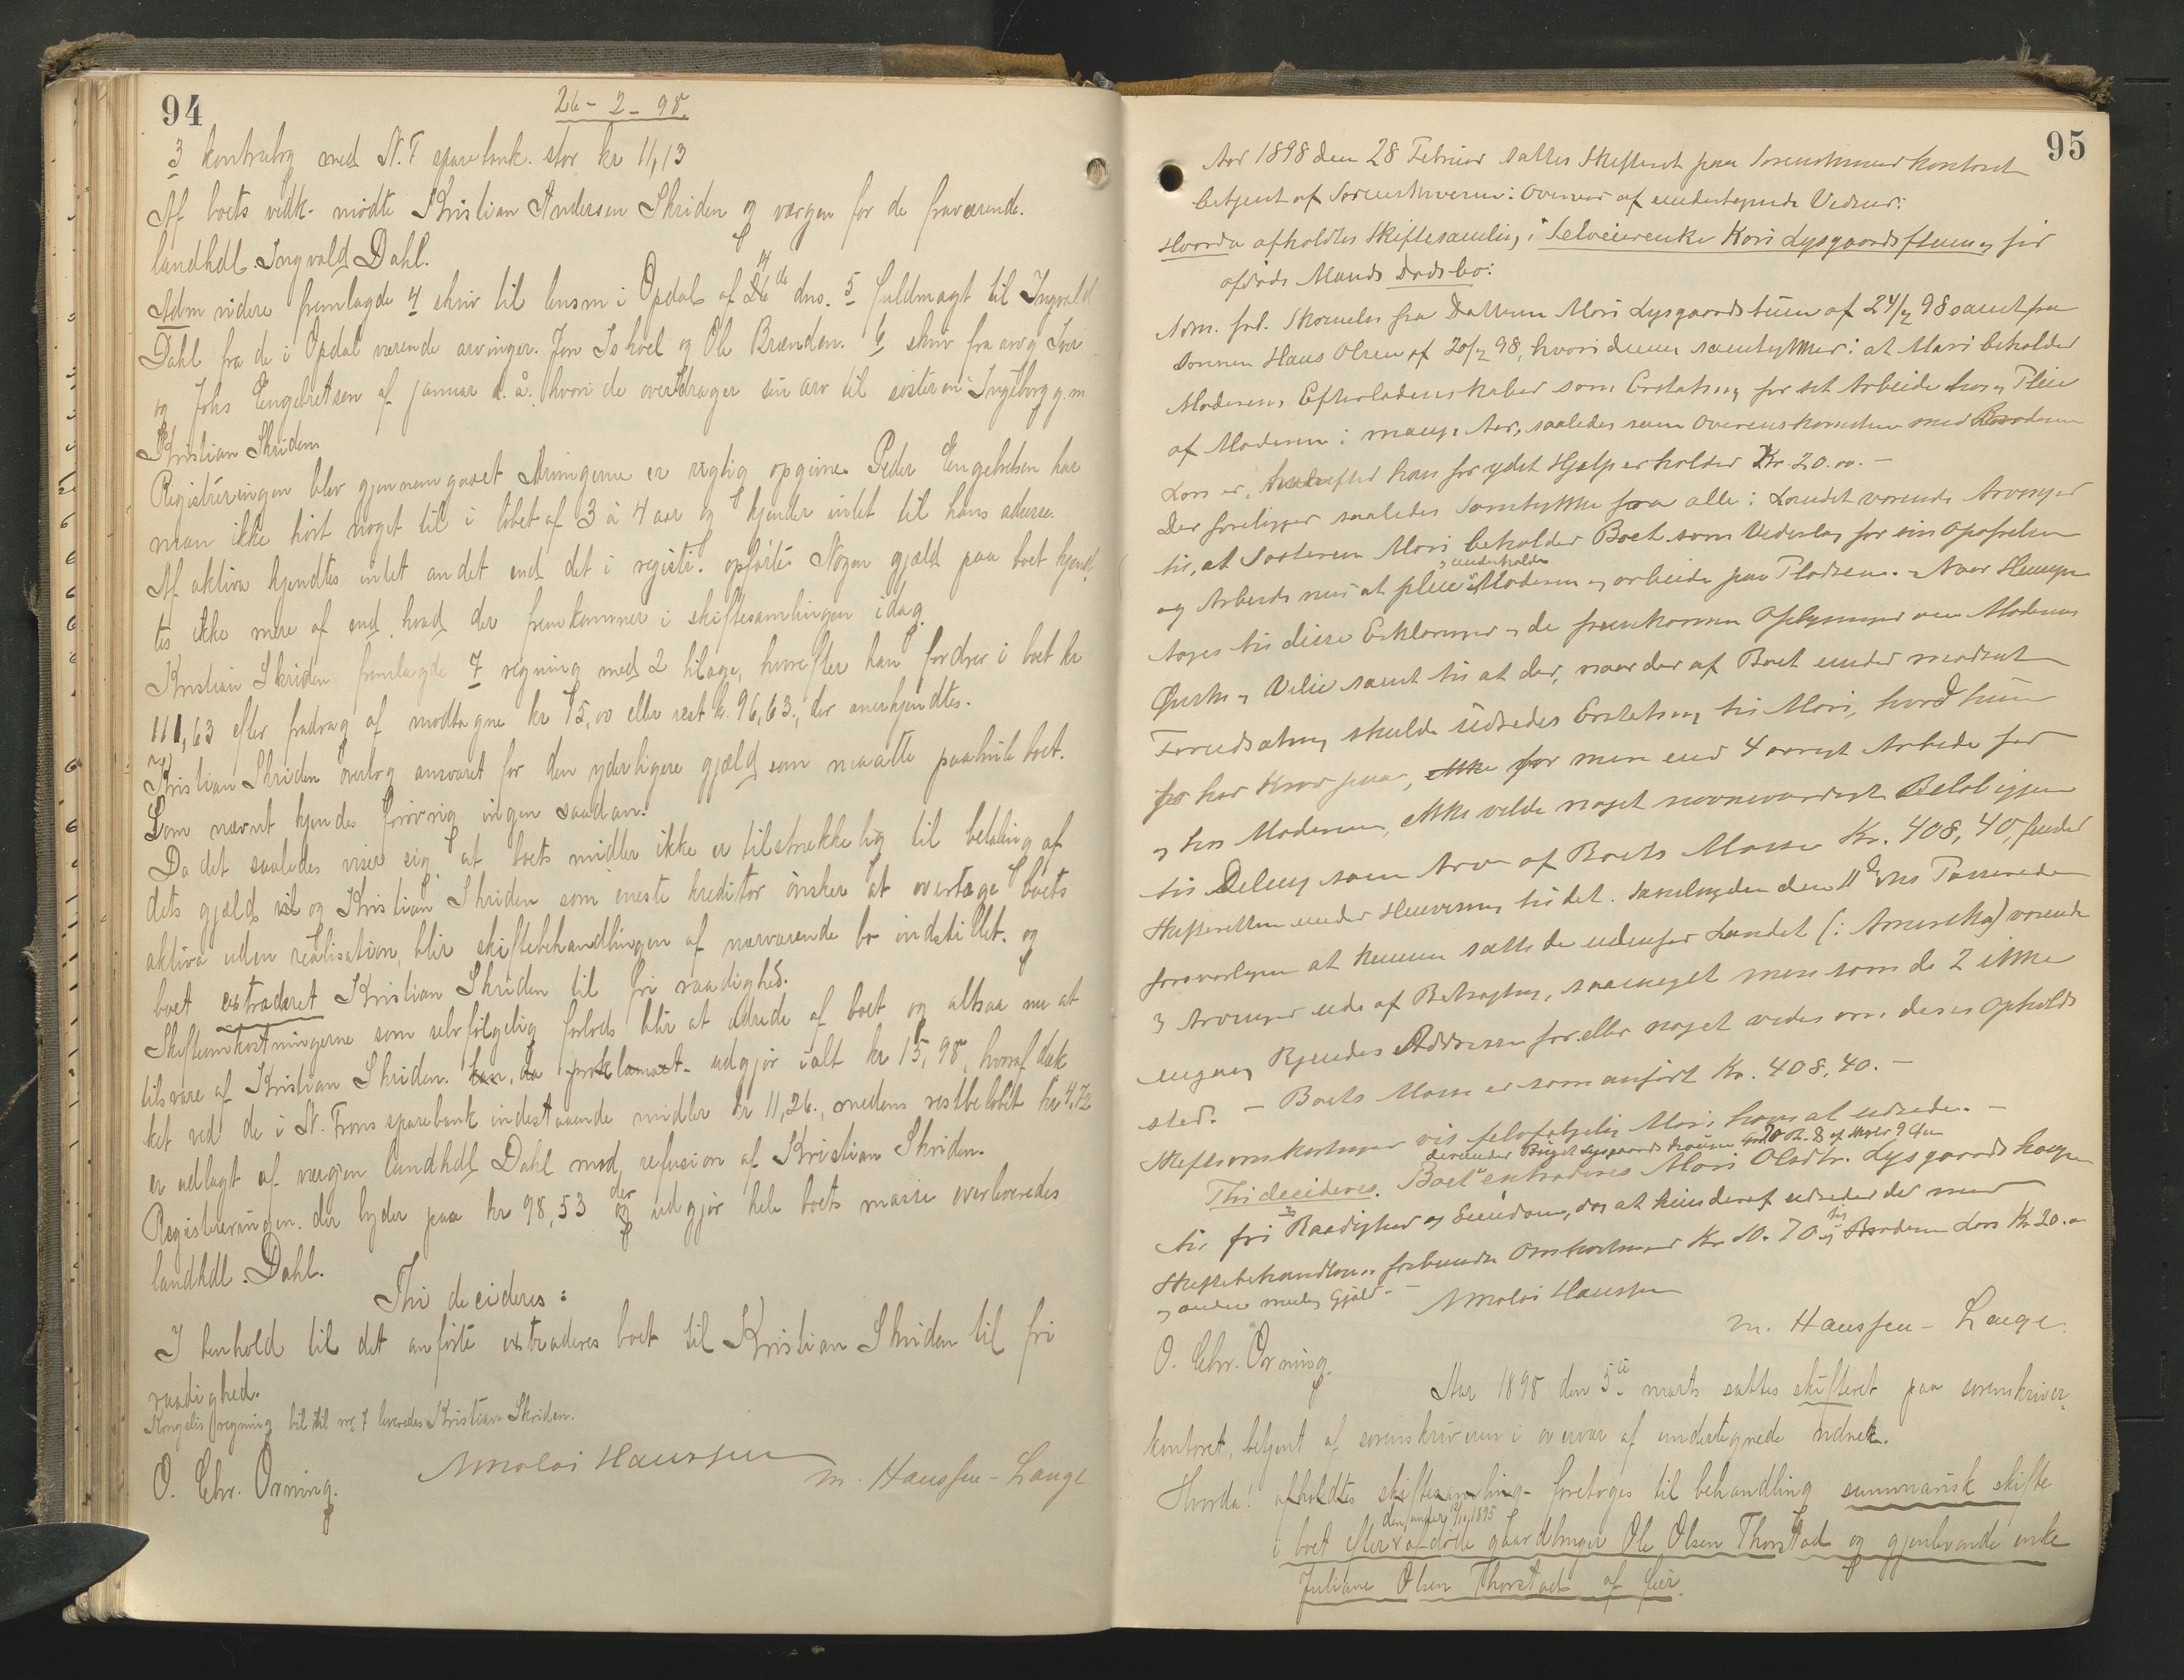 94
26-2-98.
3 kontrabog med N. F sparebank. stor kr 11,13
Af boets vedk. mødte Kristian Andersen Skriden og værgen for de fraværende.
landhdl. Ingvald Dahl.
Adm videre fremlagde 4 skriv til lensm i Opdal af 26de dns. 5 fuldmagt til Ingvald
Dahl fra de i Opdal værende arvinger. Jon Ishoel og Ole Brænden. 6 skriv fra arvg Iver
og Johs Engebretsen af januar d. å. hvori de overdrager sin arv til søsteren Ingeborg g. m
Kristian Skriden
Registreringen blev gjennemgaaet Arvingerne er rigtig opgivne. Peder Engebretsen har
man ikke hørt noget til i løbet af 3 à 4 aar og kjender intet til hans adresse.
Af aktiva kjendtes intet andet end det i registr. opførte Nogen gjæld paa boet kjend-
tes ikke mere af end hvad der fremkommer i skiftesamlingen idag.
Kristian Skriden fremlagde 7 regning med 2 bilage, hvorefter han fordrer i boet kr
111,63 efter fradrag af modtagne kr 15,00 eller rest kr. 96,63., der anerkjendtes.
Kristian Skriden overtog ansvaret for den yderligere gjæld som maatte paahvile boet.
Som nævnt kjendes forøvrig ingen saadan.
Da det saaledes viser sig at boets midler ikke er tilstrækkelig til betaling af
dets gjæld og Kristian Skriden som eneste kreditor ønsker at overtage boets
aktiva uden realisation, blir skiftebehandlingen af nærværende bo indstillet. og
boet extraderet Kristian Skriden til fri raadighed.
Skifteomkostningerne som selvfølgelig forlods blir at udrede af boet og altsaa nu at
tilsvare af Kristian Skriden. udgjør ialt kr 15,98, hvoraf dæk
ket ved de i N. Frons sparebank indestaaende midler kr 11,26., medens restbeløbet kr 4,72
er udlagt af værgen landhdl Dahl mod refusion af Kristian Skriden.
Registreringen. der lyder paa kr 98,53 der udgjør hele boets masse overleveredes
landhdl. Dahl.
Thi decideres:
I henhold til det anførte extraderes boet til Kristian Skriden til fri
raadighed.
regning bil til no 7 leveredes Kristian Skriden.
O. Chr. Orning. Nikolai Hanssen m. Hanssen-Lauge
95
Aar 1898 den 28 Februar sattes Skifteret paa Sorenskriverkontoret
betjent af Sorenskriveren i Overvær af undertegnede Vidner:
Hvorda afholdtes Skiftesamling i Selveierenke Kari Lysgaards og før
afdøde Mands Dødsbo:
Adm. frl. Skrivelse fra Datteren Mari Lysgaardstuen af 24/2 98 samt fra
Sønnen Hans Olsen af 20/2 98, hvori denne samtykker i at Mari beholder
Moderens Efterladenskaber som Erstatning for sit Arbeide hos og Pleie
af Moderen i mange Aar, saaledes som Overenskomsten med Broderen
Lars er, hvorefter han for ydet Hjælp erholder Kr. 20.00.-
Der foreligger saaledes Samtykke fra alle i Landet værende Arvinger
til, at Søsteren Mari beholder Boet som Vederlag for sin Opofrelse
og underholde
og Arbeide med at pleie Moderen og arbeide paa Pladsen. - Naar Hensyn
tages til disse Erklæringer og de fremkomne Oplysninger om Moderens
Ønske og Villie samt til at der, naar der af Boet under modsat
Forudsætning skulde udredes Erstatning til Mari, hvad hun
har Krav paa, ikke for mere end 4 aarigt Arbeide for
og hos Moderen, ikke vilde noget nævneværdigt Beløb igjen
til Deling som Arv af Boets Masse Kr. 408,40, finder
Skifteretten under Henvisning til det i Samlingen den 11te ds Passerede
forsvarligen at kunne sætte de udenfor Landet (i Amerika) værende
3 Arvinger ude af Betragtning, saameget mere som de 2 ikke
engang kjendes Addressen for eller noget vides om deres Opholds
sted. - Boets Masse er som anført Kr. 408.40.-
Skifteomkostninger vil selvfølgelig Mari have at udrede. -
Thi decideres. Boet extraderes Mari Olsdtr. Lysgaards
til fri Raadighed og Eiendom, dog at hun deraf udreder de med
Skiftebehandlingen forbundne Omkostninger Kr. 10.70 og til Broderen Lars Kr 20.00
og anden mulig Gjæld. -
Nikolai Hanssen
m. Hanssen-Lauge.
O. Chr. Orning.
Aar 1898 den 5te marts sattes skifteret paa sorenskriver-
kontoret, betjent af sorenskriveren i overvær af undertegnede vidner.
Hvorda! afholdtes skiftesamling- foretoges til behandling summarisk skifte
i boet efter afdøde gaardbruger Ole Olsen Thorstad og gjenlevende enke
Juliane Olsen Thorstad af